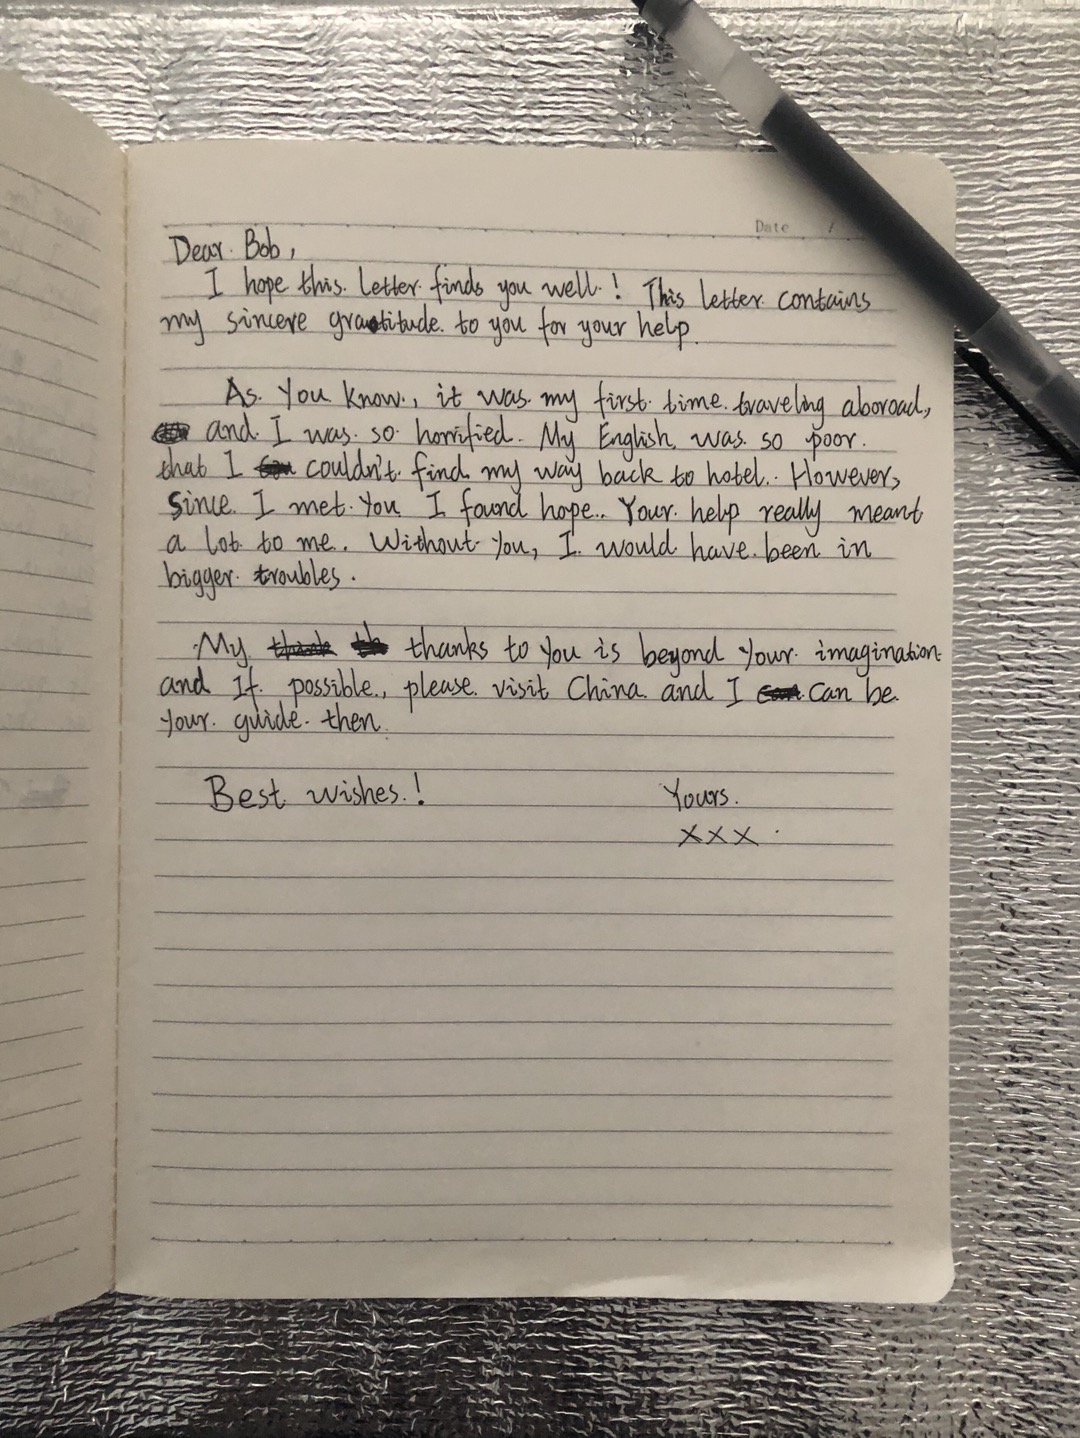 Date /
Dear Bob,
I hope this letter finds you well! This letter contains
my sincere gratitude to you for your help.
As you know, it was my first time traveling aboroad,
and I was so horrified. My English was so poor
that I couldn't find my way back to hotel. However,
since I met you I found hope. Your help really meant
a lot to me. Without you, I would have been in
bigger troubles.
My thanks to you is beyond your imagination
and If possible, please visit China and I can be
your guide then.
Best wishes! Yours.
XXX.